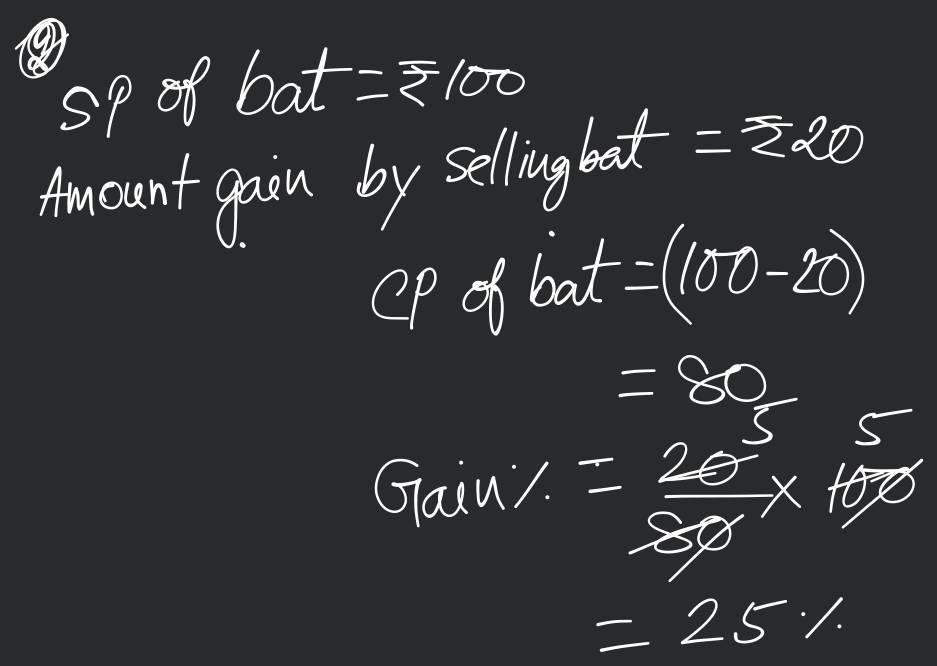 SP of bat = ₹100
Amount gain by selling bat = ₹20
CP of bat = (100-20)
= 80
5 5
Gain% = 20/80 × 100
= 25%